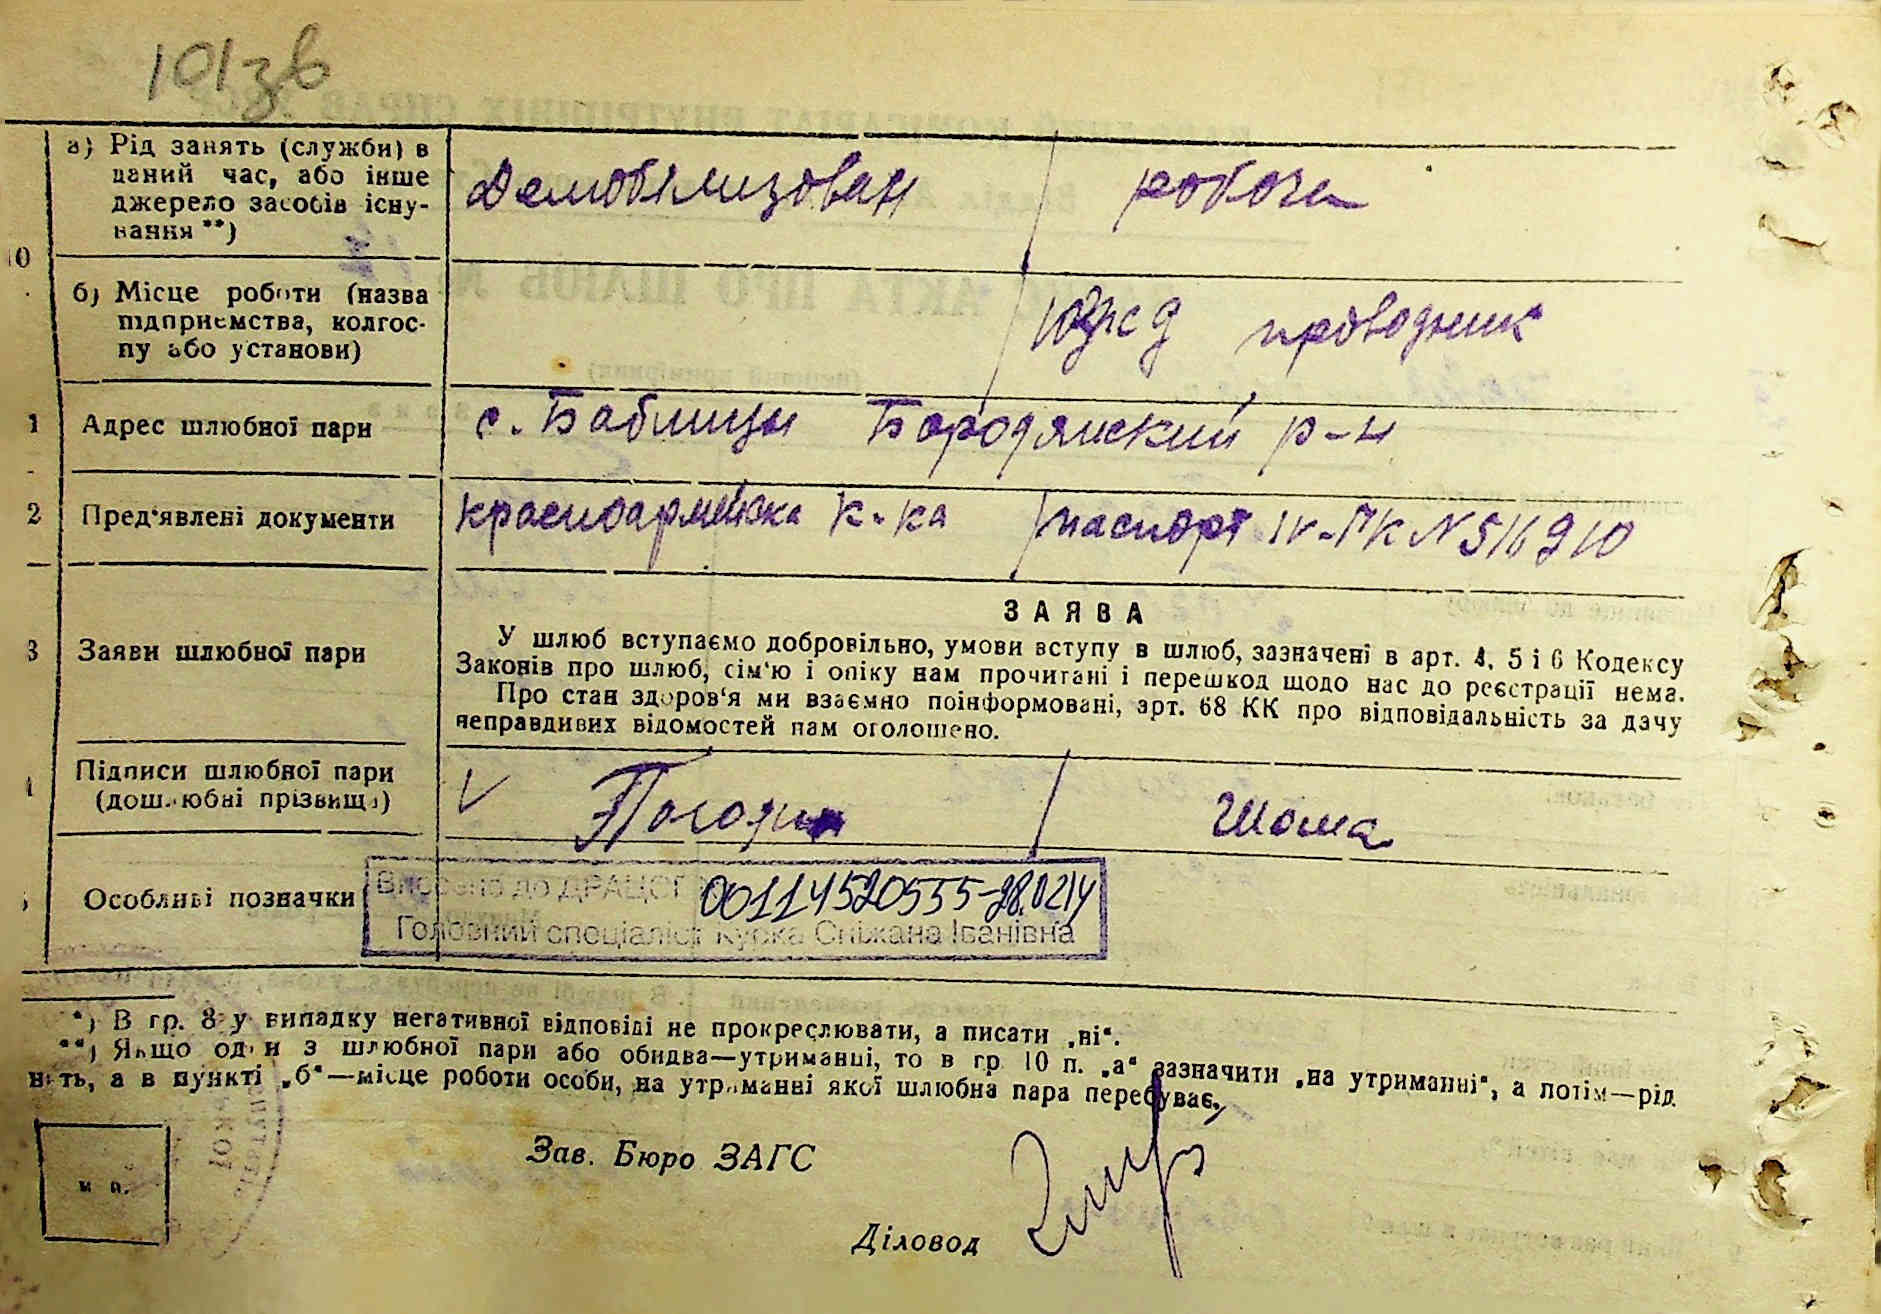 101зв
а) Рід занять (служби) в
даний час, або інше
джерело засобів існу-
вання **)
Демобілизован робоча
10
б) Місце роботи (назва
підприємства, колгос-
пу або установи)
ЮЗЖД проводник
1 Адрес шлюбної пари
с. Баблинци Бородянский р-н
2 Пред'явлені документи
красноармейська к-ка паспорт IV-ПК N 516910
3 Заяви шлюбної пари
ЗАЯВА
У шлюб вступаємо добровільно, умови вступу в шлюб, зазначені в арт. 4, 5 і 6 Кодексу
Законів про шлюб, сім'ю і опіку нам прочитані і перешкод щодо нас до реєстрації нема.
Про стан здоров'я ми взаємно поінформовані, арт. 68 КК про відповідальність за дачу
неправдивих відомостей нам оголошено.
Підписи шлюбної пари
(дошлюбні прізвища)
V Погоди Шома
Особливі позначки
Внесено до ДРАЦСГ 00114520555-28.02.14
Головний спеціаліст Курка Сніжана Іванівна
*) В гр. 8 у випадку негативної відповіді не прокреслювати, а писати „ні“.
**) Якщо один з шлюбної пари або обидва—утриманці, то в гр. 10 п. „а“ зазначити „на утриманні“, а потім—рід
нять, а в пункті „б“—місце роботи особи, на утриманні якої шлюбна пара перебуває.
м. п.
Зав. Бюро ЗАГС
Діловод